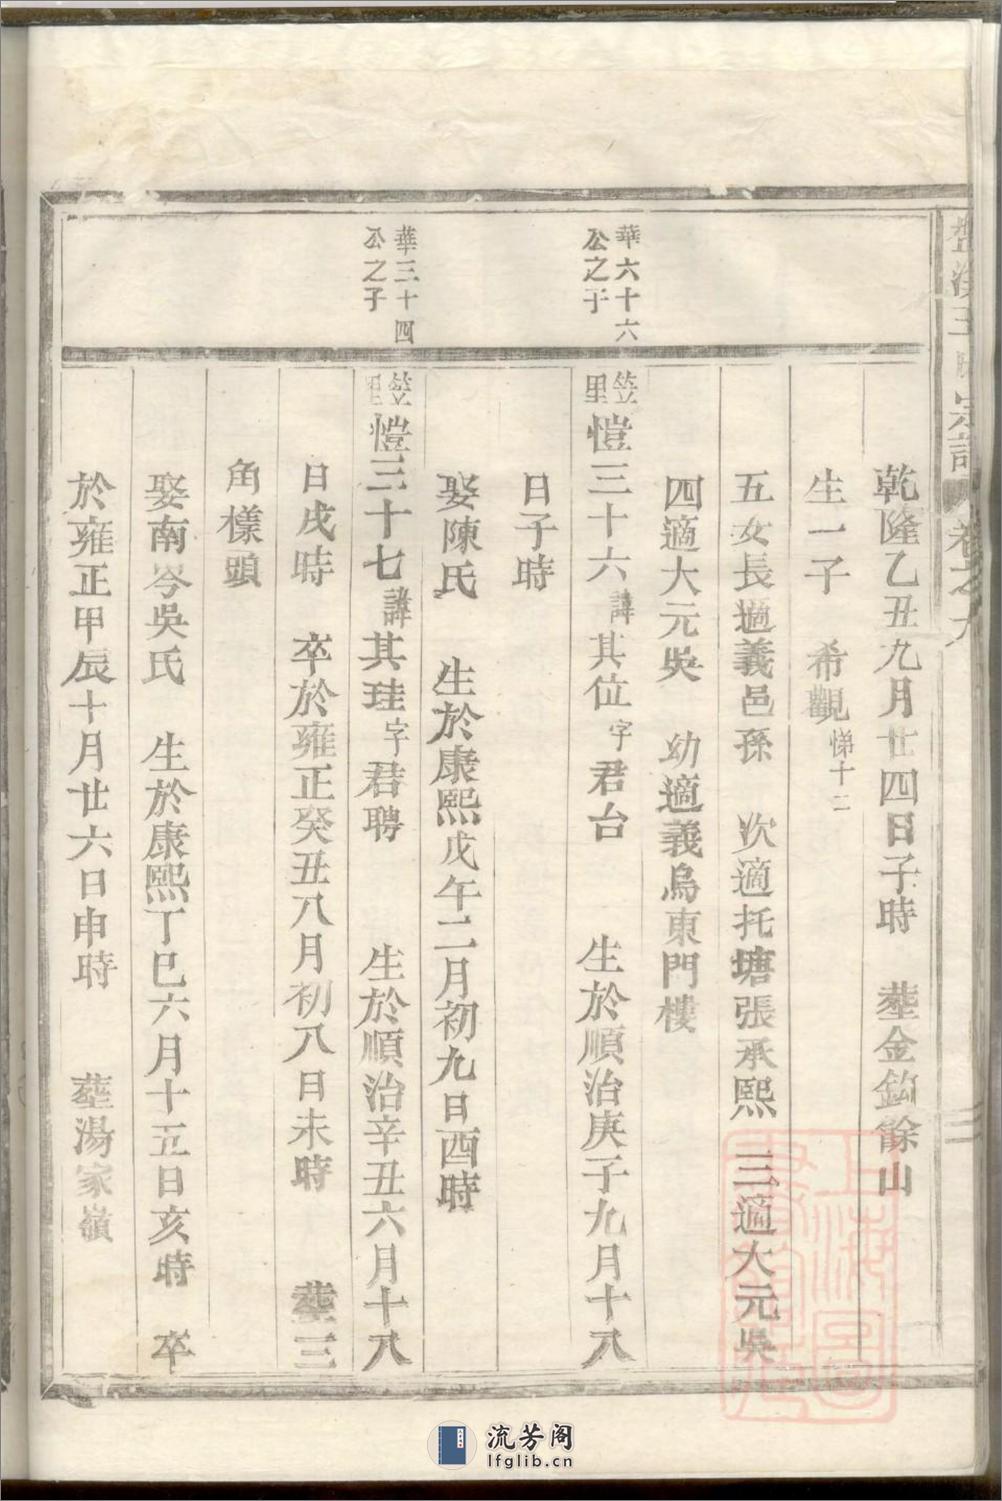 宗譜 卷之九
乾隆乙丑九月廿四日子時 塟金鈎餘山
生一子 希觀悌十二
五女長適義邑孫 次適托塘張承熙 三適大元吳
四適大元吳 幼適義烏東門樓
華六十六公之子
笠里愷三十六諱其位字君台 生於順治庚子九月十八
日子時
娶陳氏 生於康熙戊午二月初九日酉時
華三十四公之子
笠里愷三十七諱其珪字君聘 生於順治辛丑六月十八
日戌時 卒於雍正癸丑八月初八日未時 塟三
角樣頭
娶南岑吳氏 生於康熙丁巳六月十五日亥時 卒
於雍正甲辰十月廿六日申時 塟湯家嶺
上海圖書館藏
流芳阁
lfglib.cn